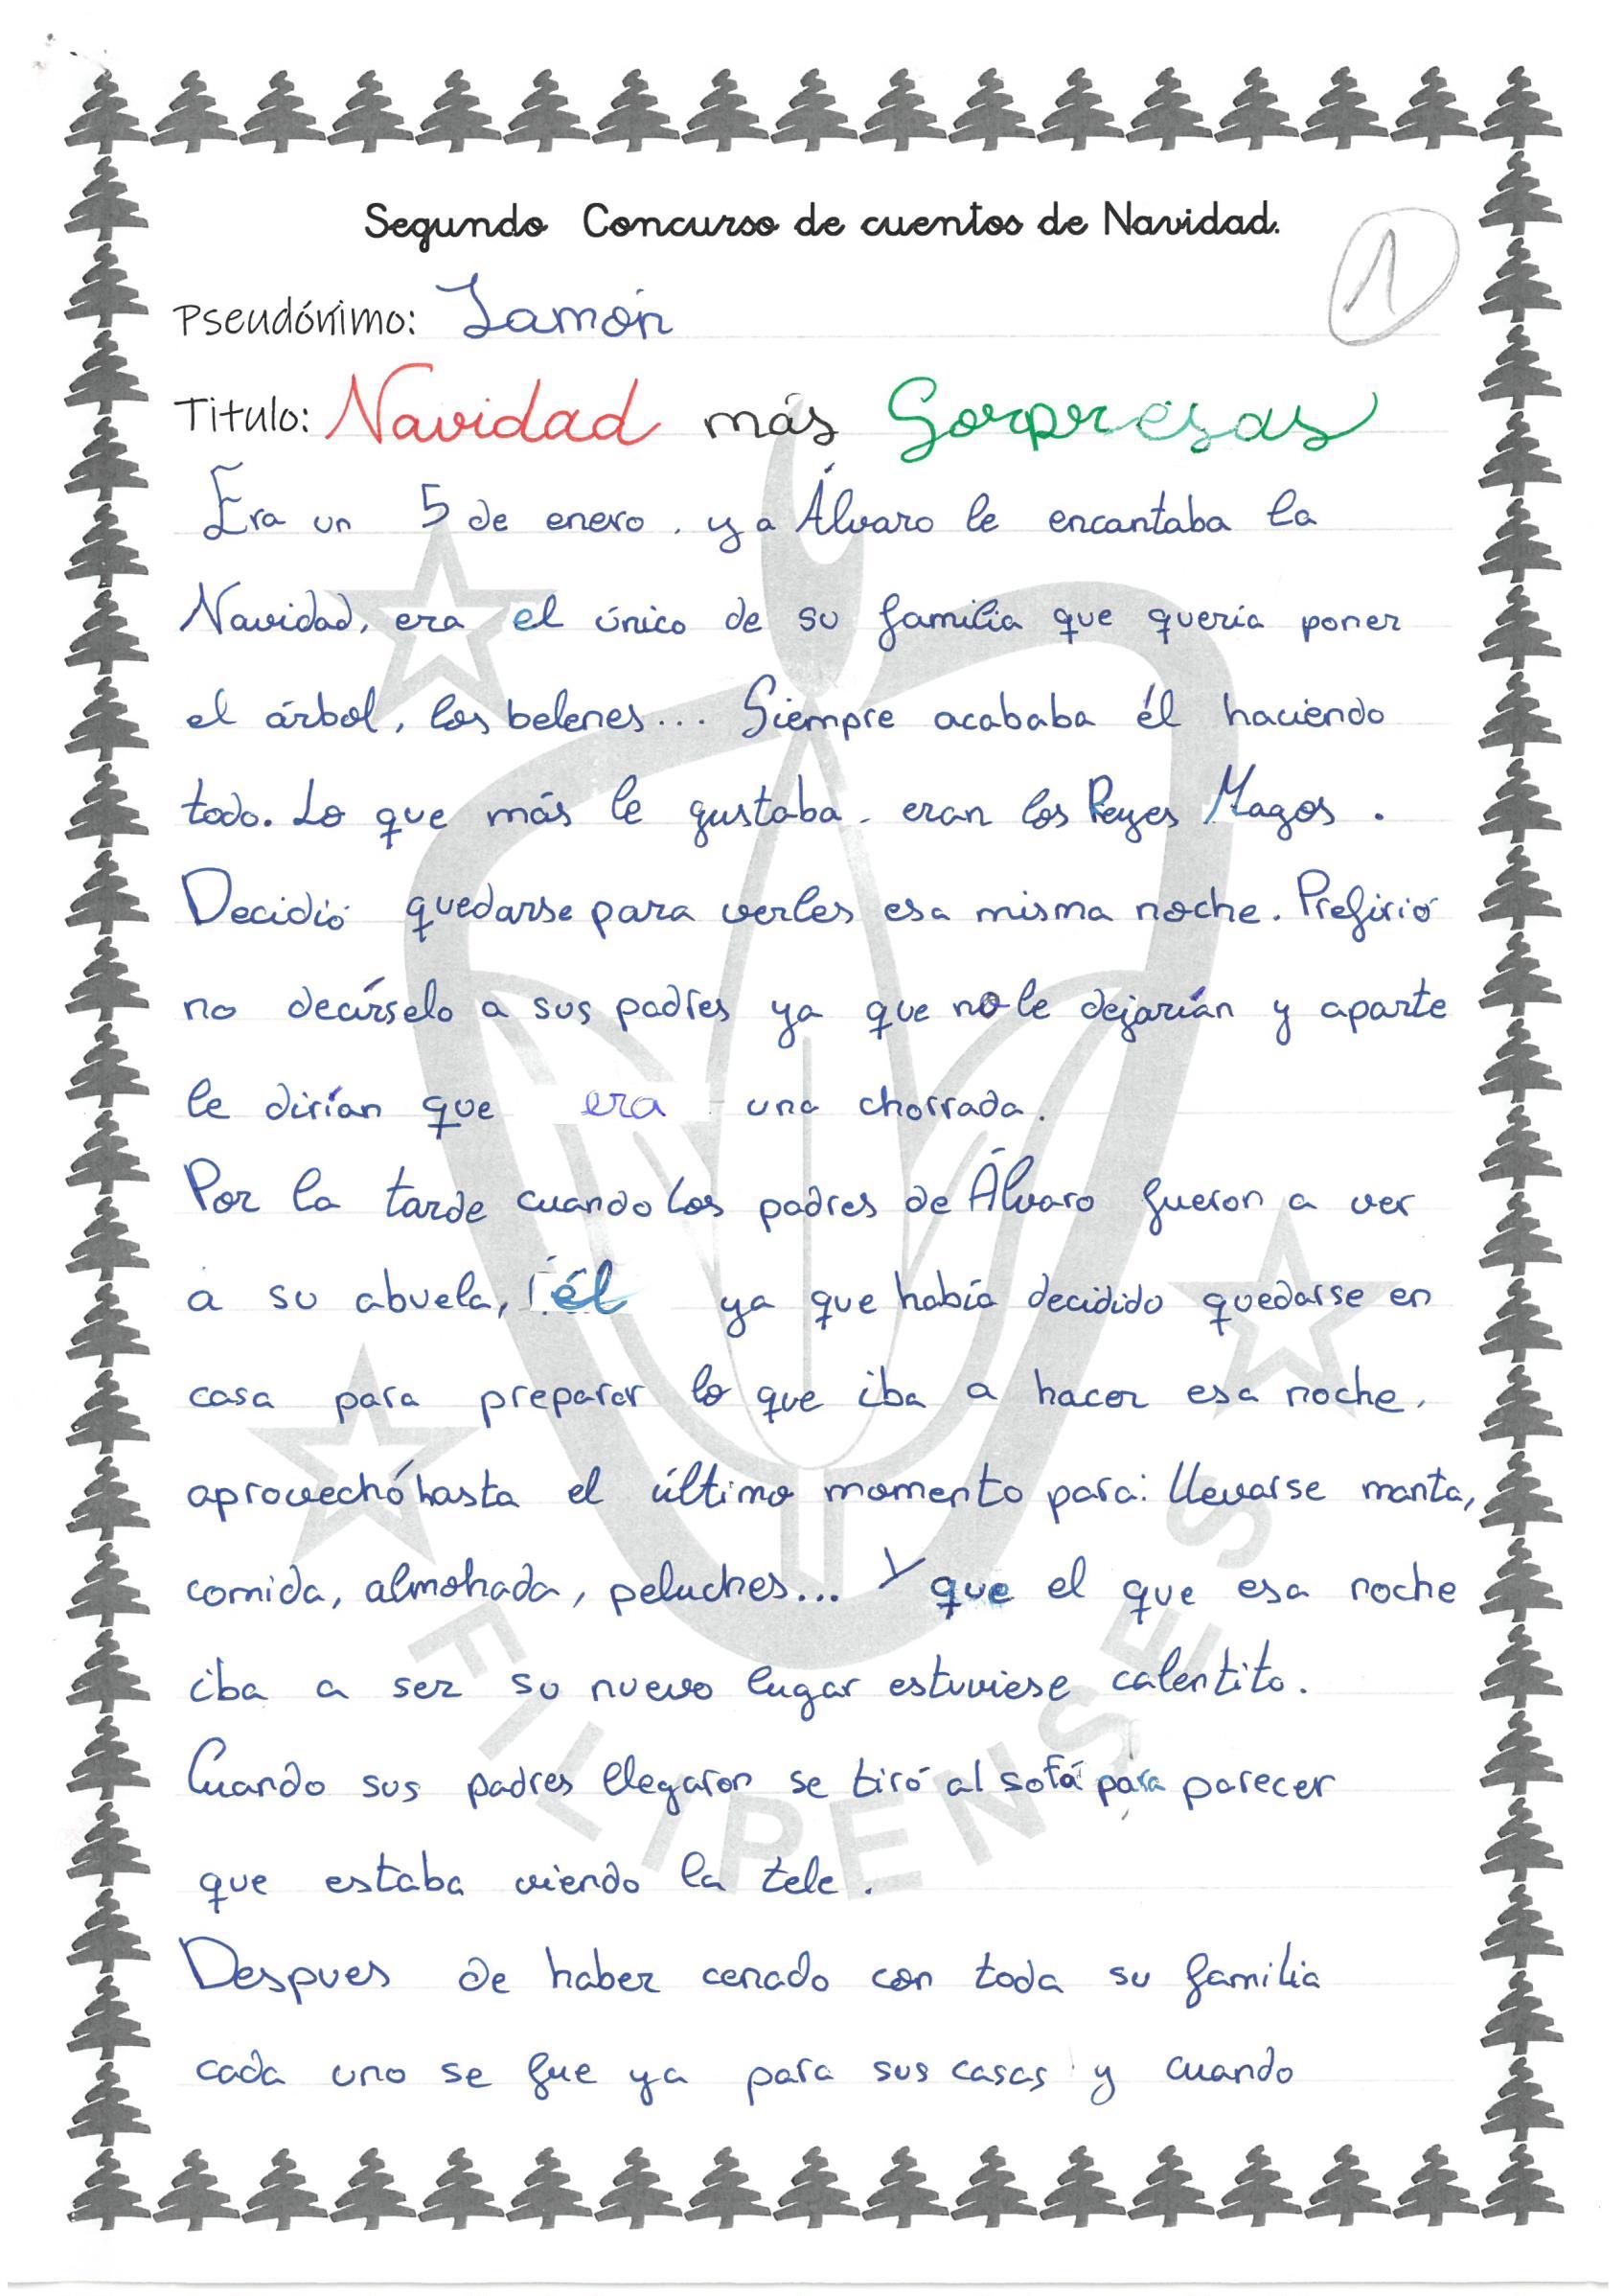 Segundo Concurso de cuentos de Navidad.
1
Pseudónimo: Jamón
Titulo: Navidad más Sorpresas
Era un 5 de enero, y a Álvaro le encantaba la
Navidad, era el único de su familia que quería poner
el árbol, los belenes... Siempre acababa él haciendo
todo. Lo que más le gustaba eran los Reyes Magos.
Decidió quedarse para verles esa misma noche. Prefirió
no decírselo a sus padres ya que no le dejarían y aparte
le dirían que era una chorrada.
Por la tarde cuando los padres de Álvaro fueron a ver
a su abuela, él ya que había decidido quedarse en
casa para preparar lo que iba a hacer esa noche,
aprovechó hasta el último momento para: llevarse manta,
comida, almohada, peluches... Y que el que esa noche
iba a ser su nuevo lugar estuviese calentito.
Cuando sus padres llegaron se tiró al sofá para parecer
que estaba viendo la tele.
Despues de haber cenado con toda su familia
cada uno se fue ya para sus casas y cuando
FILIPENSES